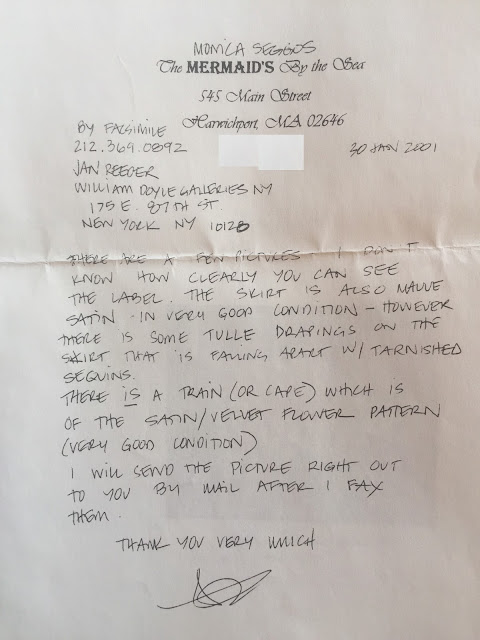 MONICA SEGGOS
The MERMAID'S By the Sea
545 Main Street
Harwichport, MA 02646
BY FACSIMILE
212.369.0892
30 JAN 2001
JAN REEDER
WILLIAM DOYLE GALLERIES NY
175 E. 87TH ST.
NEW YORK NY 10128
THERE ARE A FEW PICTURES - I DON'T
KNOW HOW CLEARLY YOU CAN SEE
THE LABEL. THE SKIRT IS ALSO MAUVE
SATIN - IN VERY GOOD CONDITION - HOWEVER
THERE IS SOME TULLE DRAPINGS ON THE
SKIRT THAT IS FALLING APART W/ TARNISHED
SEQUINS.
THERE IS A TRAIN (OR CAPE) WHICH IS
OF THE SATIN/VELVET FLOWER PATTERN
(VERY GOOD CONDITION)
I WILL SEND THE PICTURE RIGHT OUT
TO YOU BY MAIL AFTER I FAX
THEM.
THANK YOU VERY MUCH